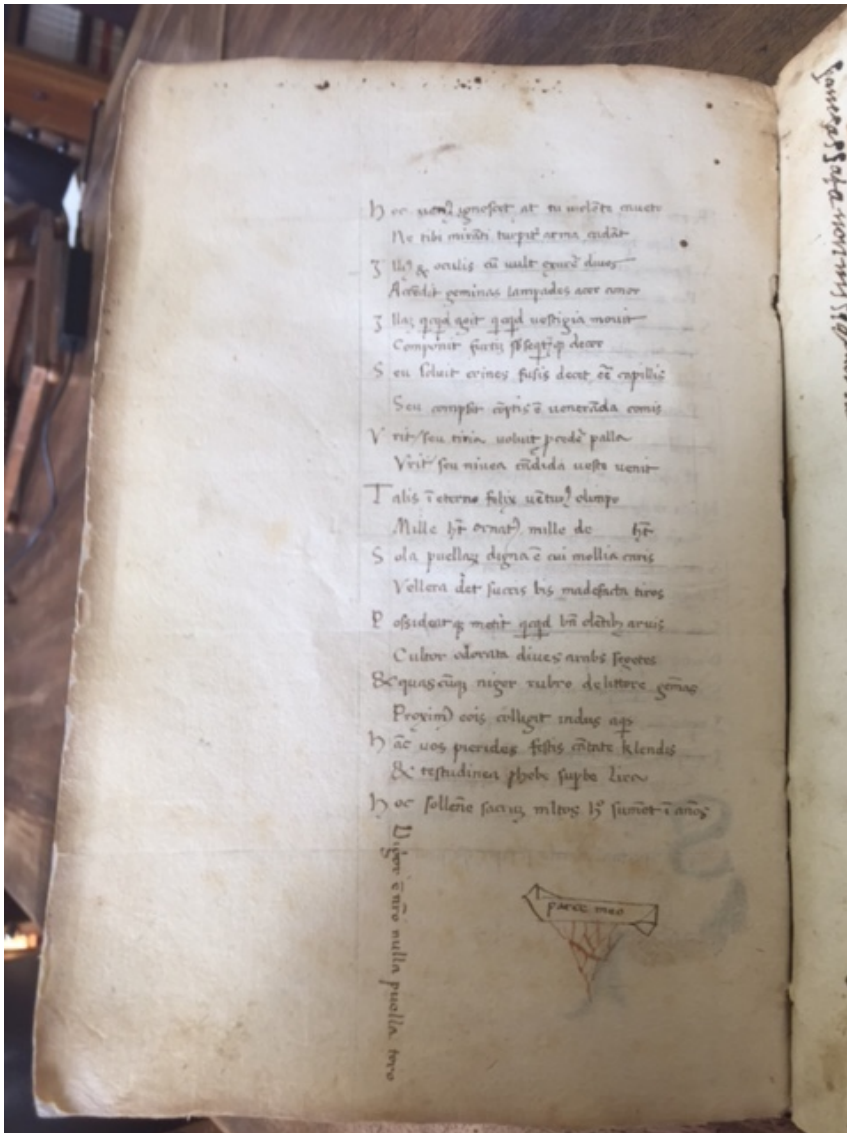 Hoc ueñ ignoscet at tu uiolẽte caueto
Ne tibi mirãti turpit̃ arma cadãt
Illiꝰ & oculis cũ uult exurẽ diuos
Accẽdit geminas lampades acer amor
Illaʒ qcqd agit qcqd uestigia mouit
Componit furtĩ sƀseqt̃qꝫ decor
Seu soluit crines fusis decet eẽ capillis
Seu compsit cõptis ẽ uenerãda comis
Vrit seu tiria uoluit ꝓcedẽ palla
Vrit seu niuea cãdida ueste uenit
Talis ĩ eterno felix uẽtũnꝰ olimpo
Mille hꝫt ornatꝰ mille de hꝫt
Sola puellaꝝ digna ẽ cui mollia caris
Vellera det succis bis madefacta tiros
Possideatqꝫ metit qcqd bñ olẽtibꝫ aruis
Cultor odorata diues arabs segetes
& quascũqꝫ niger rubro de littore gẽmas
Proximꝰ eois colligit indus aqis
Hãc uos pierides festis cãtate klendis
& testudinea phebe supbe lira
Hoc sollẽne sacrũ mltos hꝰ sumet ĩ años
Dignor ẽ nr̃o nulla puella toro
parce meo